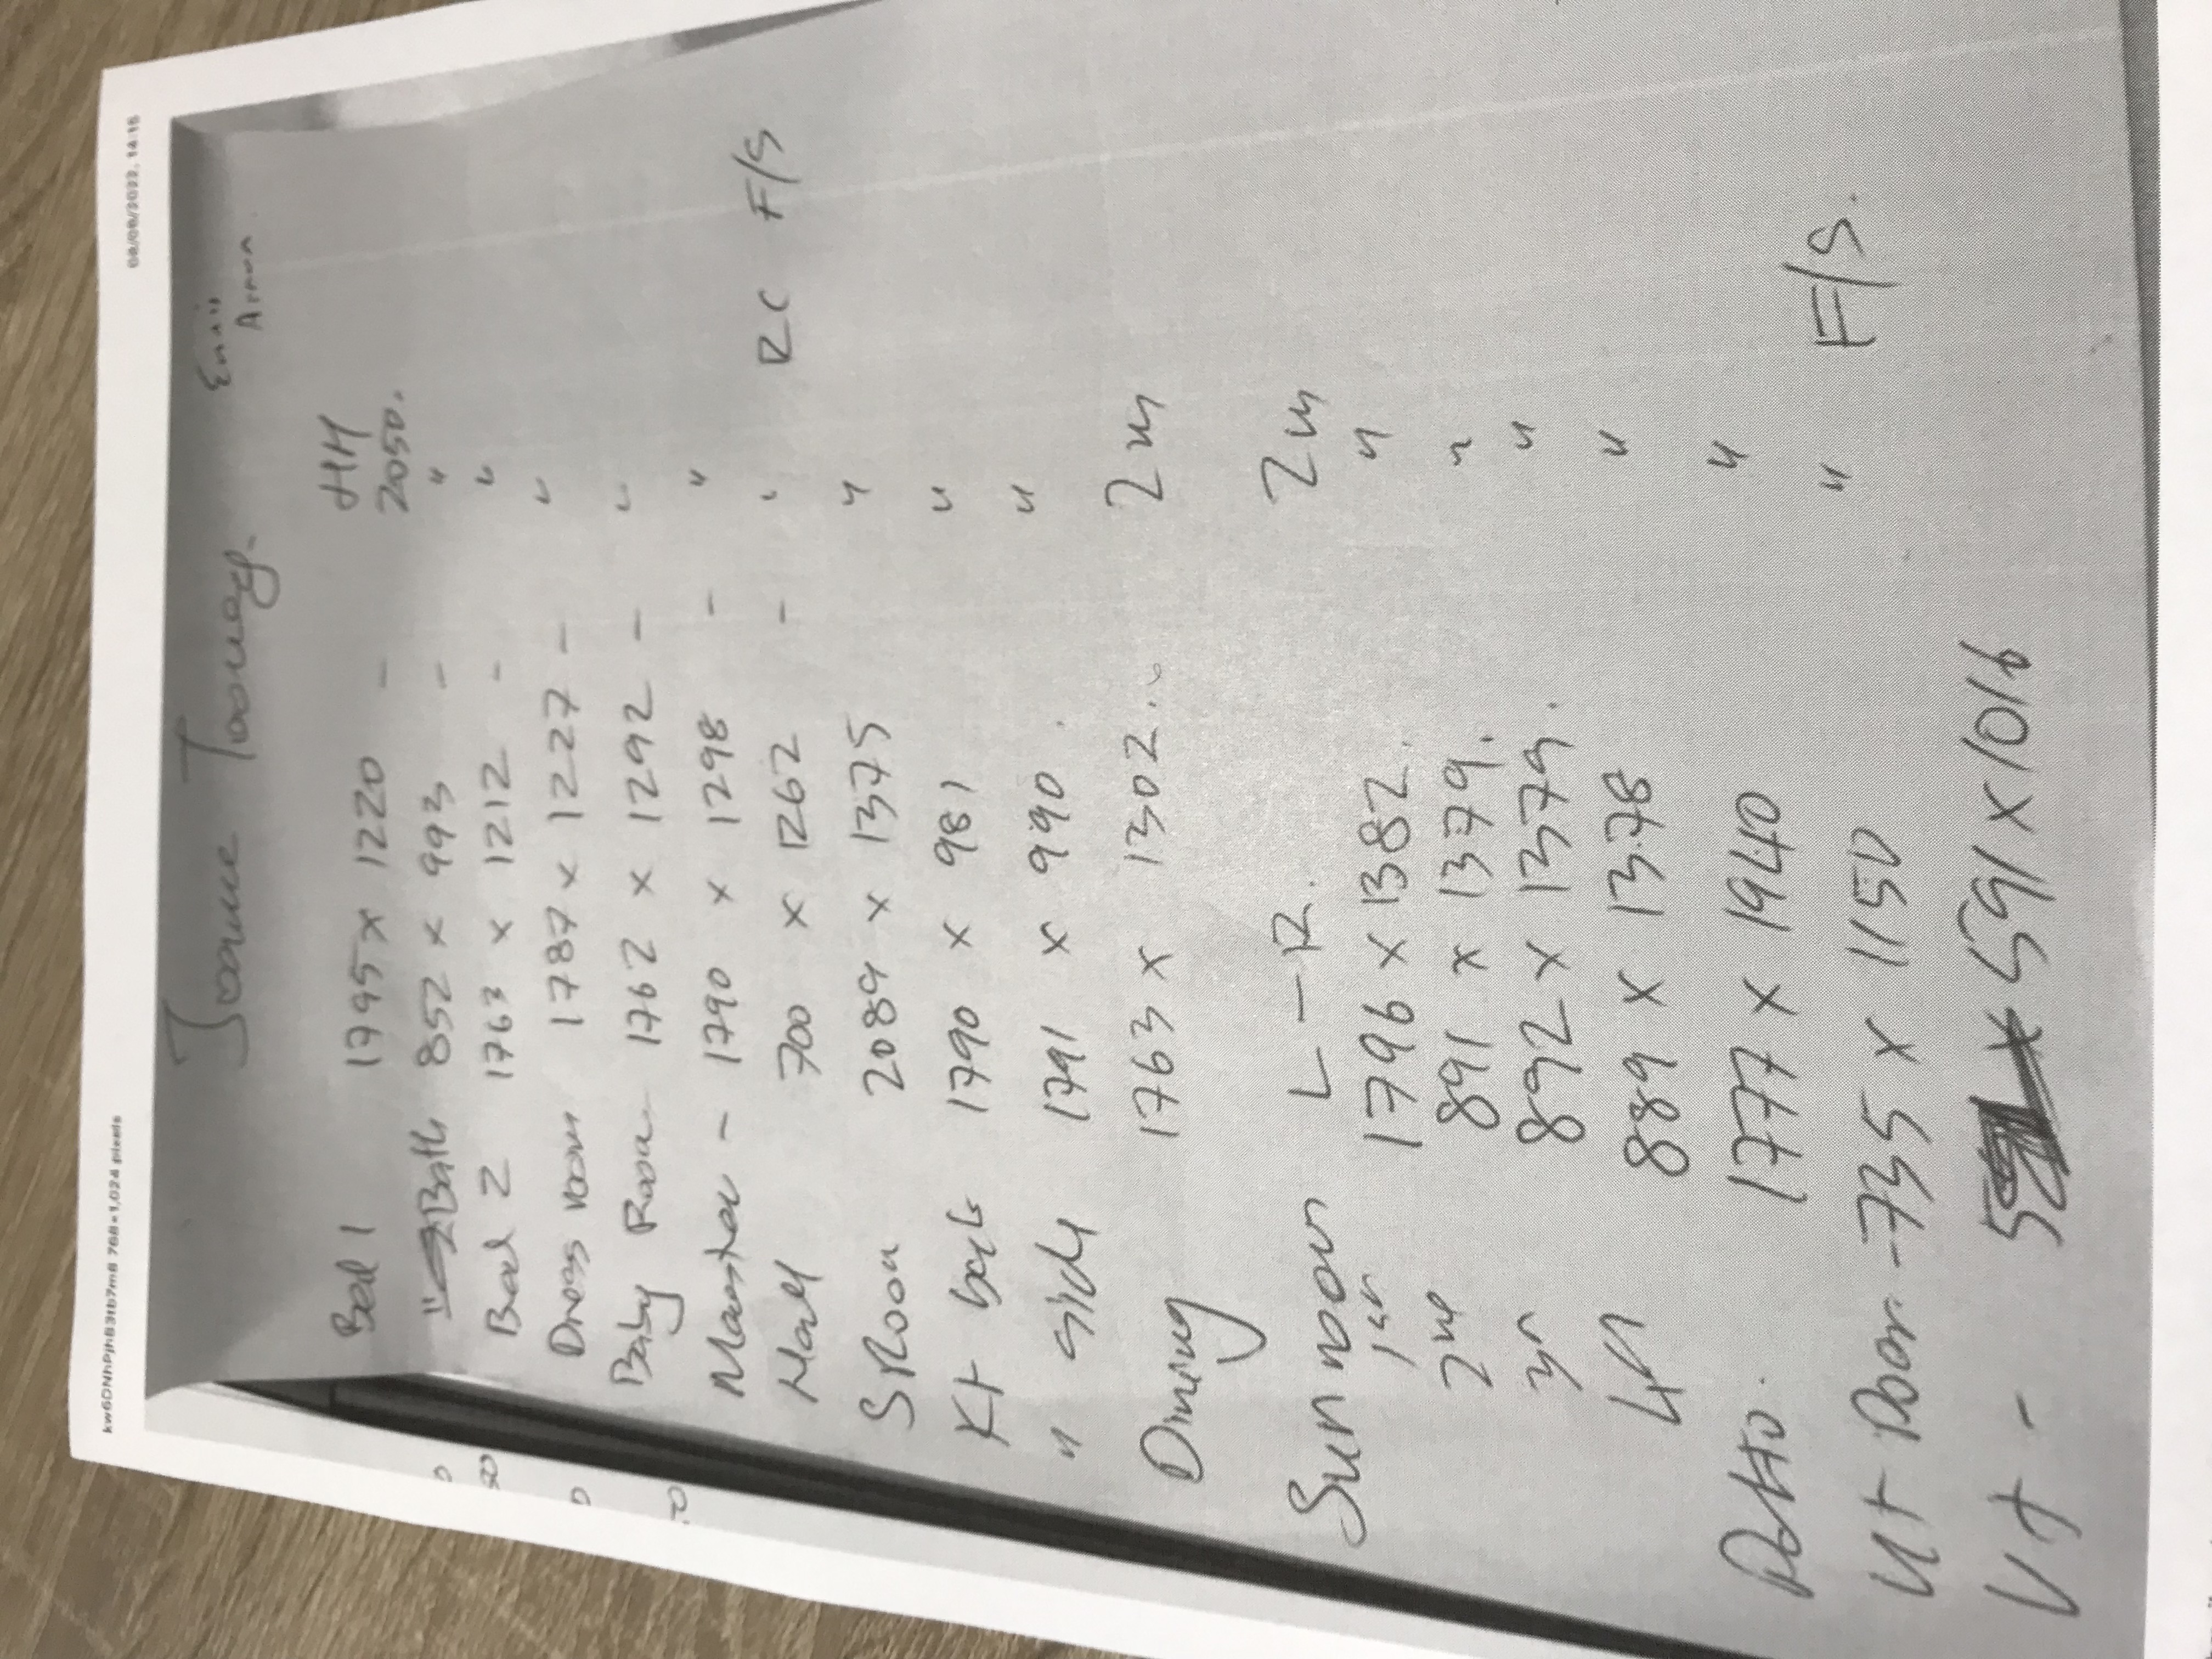 kw6DNhPjhB3tb7m6 768×1,024 pixels 08/09/2022, 14:15
Joanne Toomey. Ennis
HH
Bed 1 1795 x 1220 - 2050.
" Bath 852 x 993 - "
Bed 2 1763 x 1212 - "
Dress room 1787 x 1227 - "
Baby Room 1762 x 1292 - "
Master - 1790 x 1298 - "
Hall 700 x 1262 - " RC F/S
SRoom 2089 x 1375 "
Kt back 1790 x 981 "
" side 1791 x 990 "
Dining 1763 x 1302 2m
Sun room L - R. 2m
1st 1796 x 1382. "
2nd 891 x 1379. "
3r 892 x 1379. "
4th 889 x 1378 "
Patio. 1777 x 1940 "
Ut Door - 735 x 1150 " F/S.
Ut - 591 x 1016